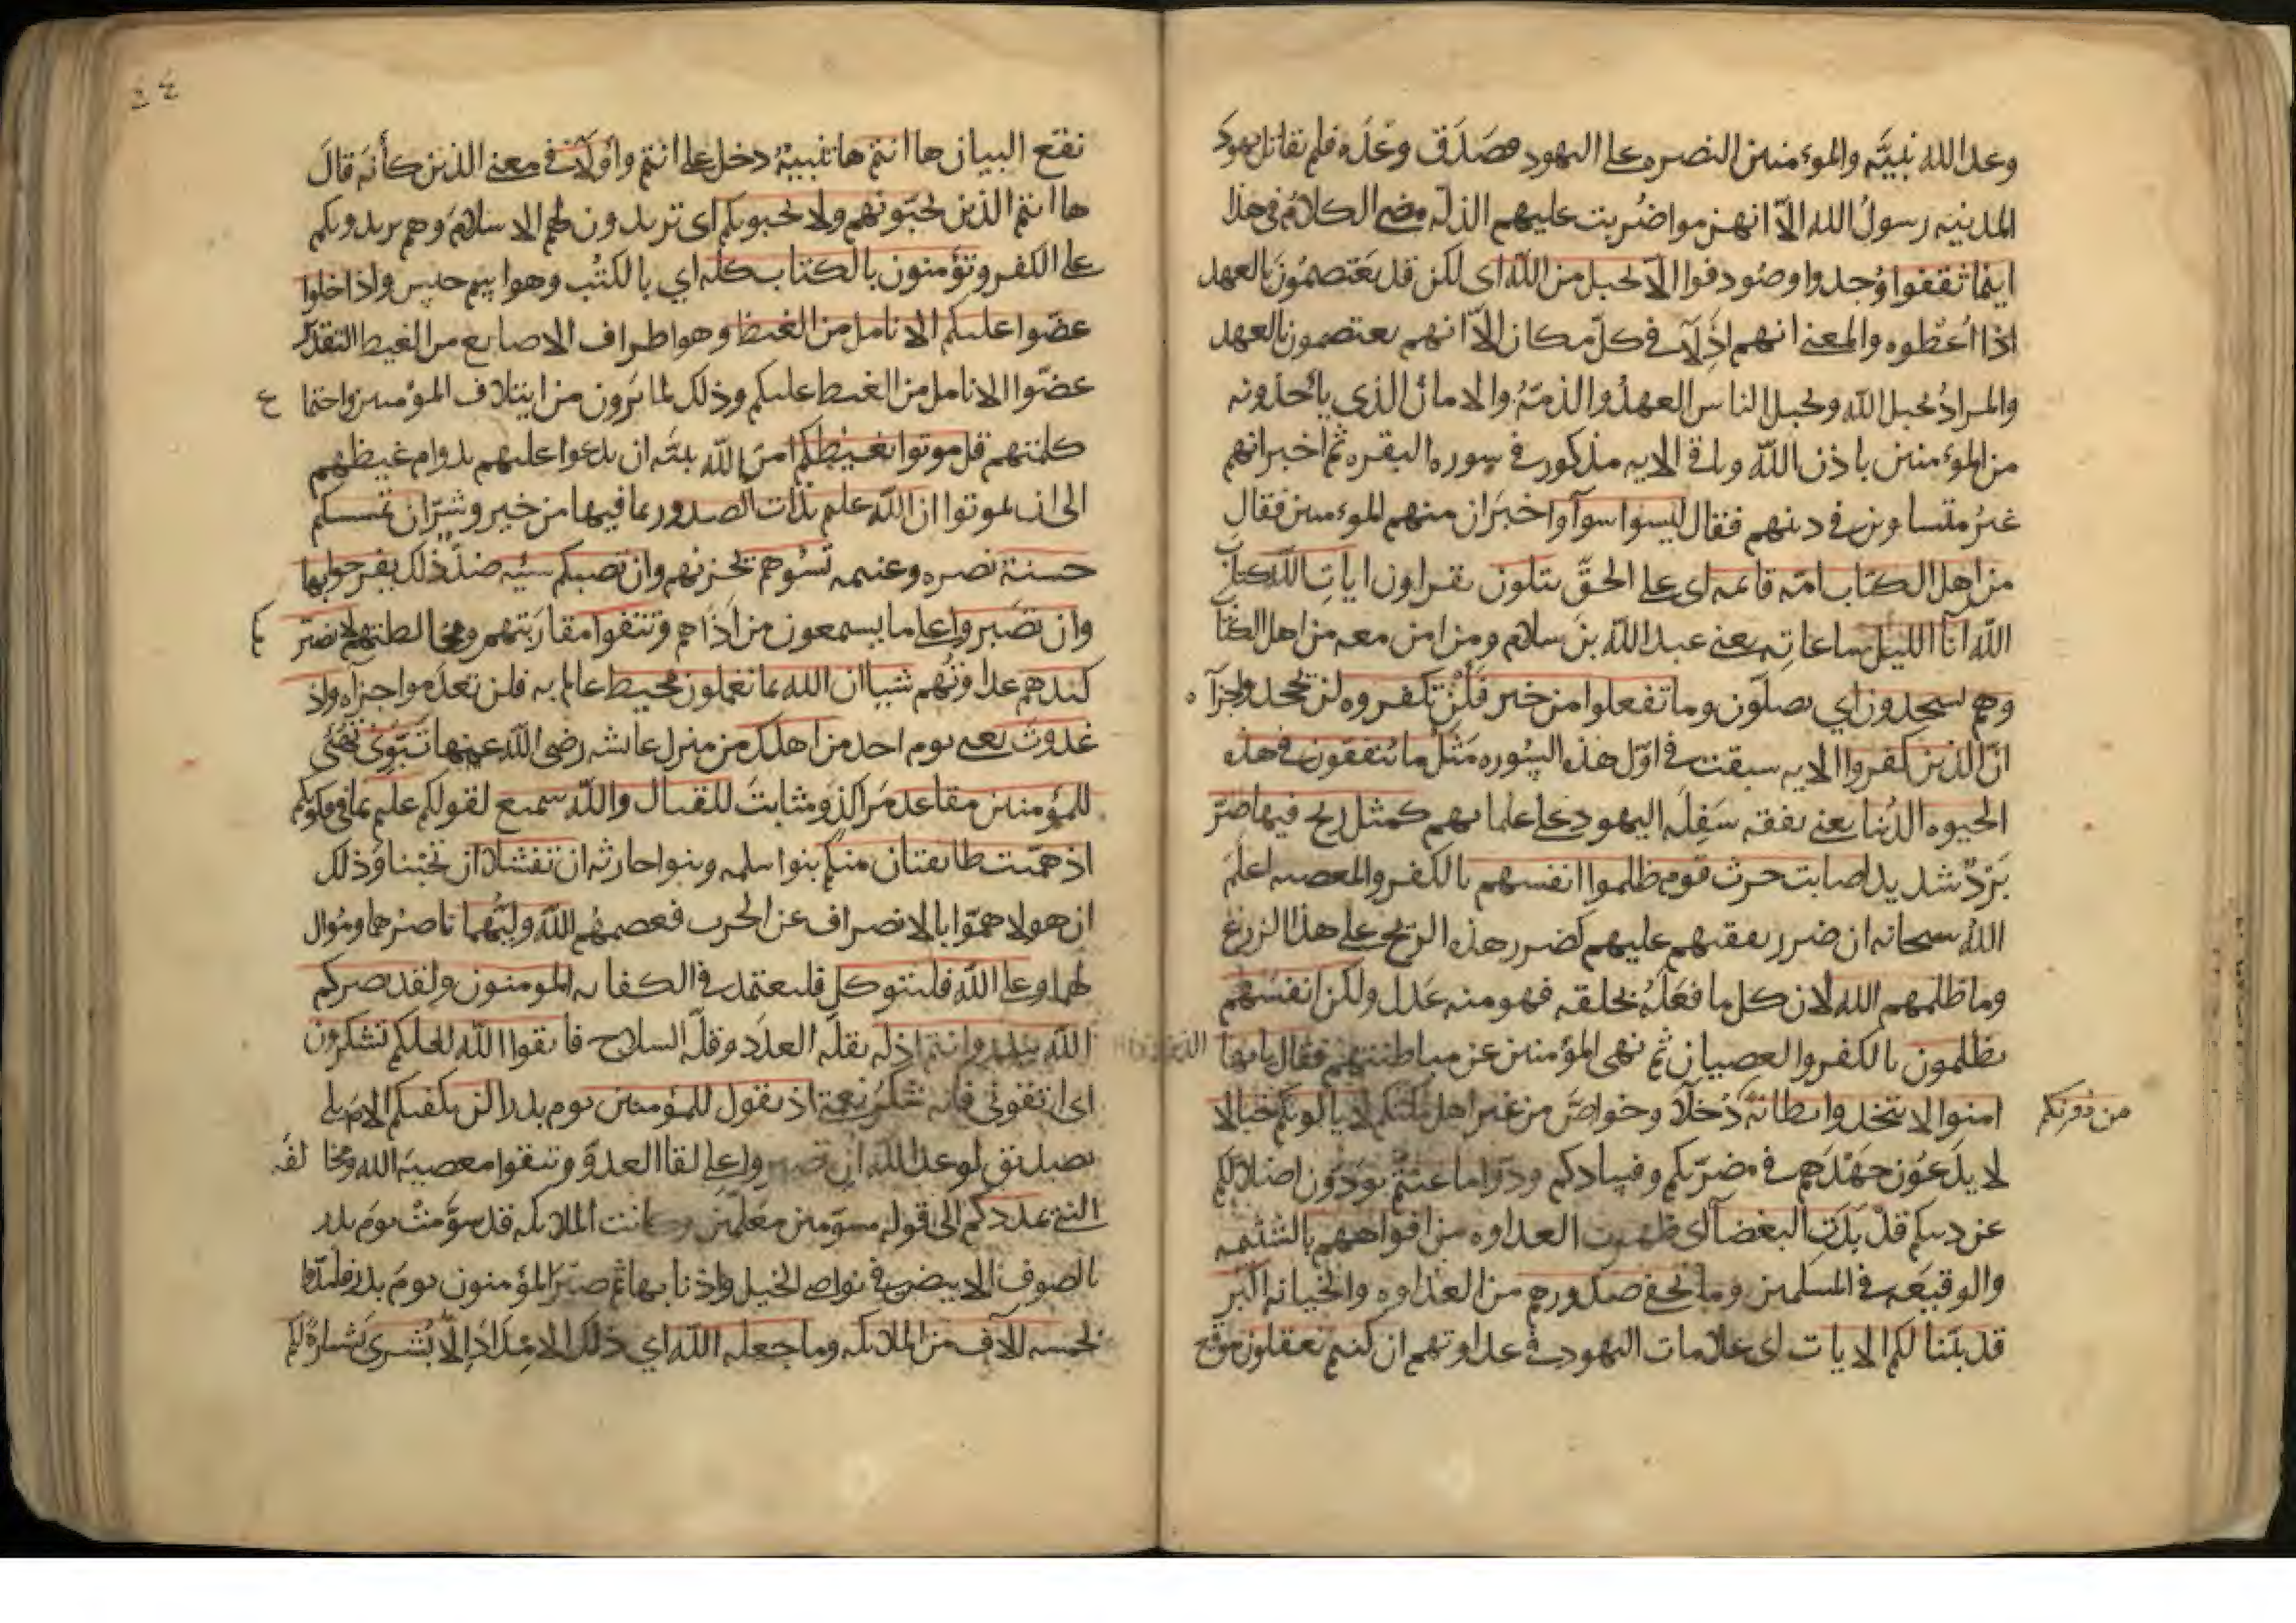 وعد الله نبيَّه والموءمنين النصره على اليهود فصَدَق وعْدَه فلم يقاتل يهودَ
المدينه رسولُ الله الّا انهزموا ضُربت عليهم الذله مضى الكلامُ في هذا
اينما ثقفوا وُجدوا وصُودفوا الّا بحبل من الله اى لكن قد يَعتصمُونَ بالعهد
اذا اُعْطُوه والمعنى انهم اذِلّاء في كلّ مكان الّا انهم يعتصمون بالعهد
والمرادُ بحبل الله وبحبل الناس العهدُ والذمّةُ والامانُ الذي يأخذونه
من الموءمنين باذن الله وباقى الايه مذكور في سوره البقره ثم اخبر انهم
غيرُ متساوين في دينهم فقال ليسوا سوآءً واخبَر ان منهم الموءمنين فقال
من اهل الكتاب امّه قائمه اى على الحقّ يتلون يقراون اياتِ الله كتابَ
الله آنآ الليل ساعاتِه يعنى عبد الله بنَ سلام ومن امن معه من اهل الكتاب
وهم يسجدون اي يصلّون وما تفعلوا من خير فلَنْ تكفروه لن تجحدوا جزآه
انّ الذين كفروا الايه سبقت في اوّل هذه السُوره مَثَلُ ما ينفقون في هذه
الحيوه الدُنيا يعنى نفقه سَفِلَه اليهود على علمايهم كمثل ريح فيها صِرّ
بَرْدٌ شديد اصابت حرث قوم ظلموا انفسهم بالكفر والمعصيه اعلمَ
اللهُ سبحانه ان ضرر نفقتهم عليهم كضرر هذه الريح على هذا الزرع
وما ظلمهم الله لان كل ما فعَلَهُ بخلقه فهو منه عَدل ولكن انفسَهم
يظلمون بالكفر والعصيان ثم نهى المؤمنين عن مباطنتهم فقال يا ايها الذين
امنوا لا تتخذوا بطانَةً دُخلآء وخواصَّ من غير اهل ملتكم لا يالونكم خبالا
من دونكم
لا يدَعُون جَهْدَهم في مضرّتكم وفسادكم ودّوا ما عنتّم يوَدّون اضلالكم
عن دينكم قد بَدَتِ البغضآ اى ظهرت العداوه من افواههم بالشتيمه
والوقيعَه في المسلمين وما تخفى صدورهم من العداوه والخيانه اكبَر
قد بيّنا لكم الايات اى علامات اليهود في عداوتهم ان كنتم تعقلون موقع
نفع البيان ها انتم ها تنبيهٌ دخل على انتم واُولآء في معنى الذين كأنه قالَ
ها انتم الذين تحبّونهم ولا يحبونكم اى تريدون لهم الاسلامَ وهم يريدونكم
على الكفر وتؤمنون بالكتاب كلّه اي بالكتُب وهو اسم جنس واذا خلوا
عضّوا عليكم الانامل من الغيظ وهو اطراف الاصابع من الغيظ التقدير
عضّوا الانامل من الغيظ عليكم وذلك لما يَرَون من ايتلاف المؤمنين واجتماع
كلمتهم قل موتوا بغيظكم امرَ الله نبيَّه ان يدعوا عليهم بدوام غيظهم
الى ان يموتوا ان الله عليم بذات الصدور بما فيها من خير وشرّ ان تمسسكم
حسنة نصره وغنيمه تسُؤهم تحزنهم وان تصبكم سيّه ضدّ ذلك يفرحوا بها
وان تصبروا على ما يسمعون من اَذَاهم وتتقوا مقاربَتهم ومخالطتهم لا يضرّكم
كيدهم عداوتُهم شيا ان الله بما تعملون محيط عالم به فلن تعدموا جزآه واذ
غدوتَ يعنى يوم احد من اهلك من منزل عايشه رضى الله عنها تبَوّئ تهيّئ
للمؤمنين مقاعد مَراكزَ ومثابتَ للقتال والله سميع لقولكم عليم بما في قلوبكم
اذ همّت طايفتان منكم بنوا سلمه وبنوا حارثه ان تفشلا ان تجْبُنا وذلك
ان هولا همّوا بالانصراف عن الحرب فعصمهُم الله والله وليّهما ناصرُهما ومُوالٍ
لهما وعلى الله فليتوكل فليعتمد في الكفايه المومنون ولقد نصركم
الله ببدر وانتم اذله بقلّه العدَد وقلّه السلاح فاتقوا الله لعلكم تشكرون
اى اتقونى فانه شكرُ نعمتى اذ تقول للمؤمنين يوم بدر الن يكفيكم الايَه بلى
تصديق لوعد الله ان تصبروا على لقآ العدوّ وتتقوا معصيه الله ومخالفَه
النبىّ يمددكم الى قوله مسوّمين معَلّمين وكانت الملايكه قد سوّمتْ يومَ بدر
بالصوف الابيض في نواصى الخيل واذنابها ثم صبَرَ المؤمنون يومَ بدر فاُمدّوا
بخمسه آلاف من الملايكه وما جعله الله اي ذلك الامدادَ الّا بُشرى بشارةً لكم